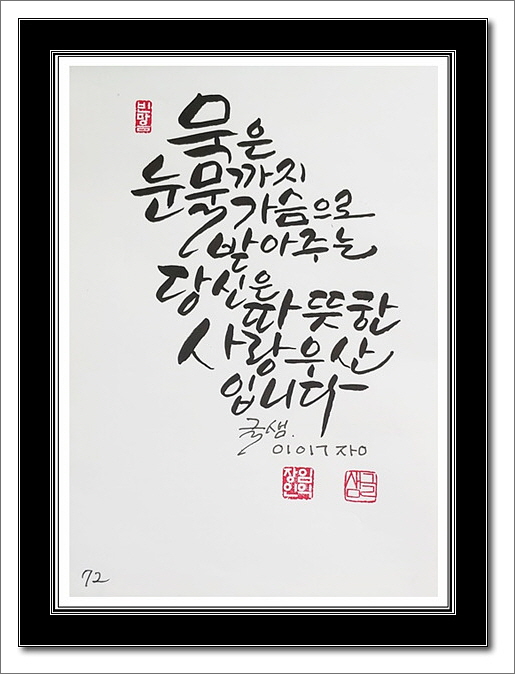 묵은
눈물까지
가슴으로
받아주는
당신은
따뜻한
사랑우산
입니다
글샘.
글샘
72